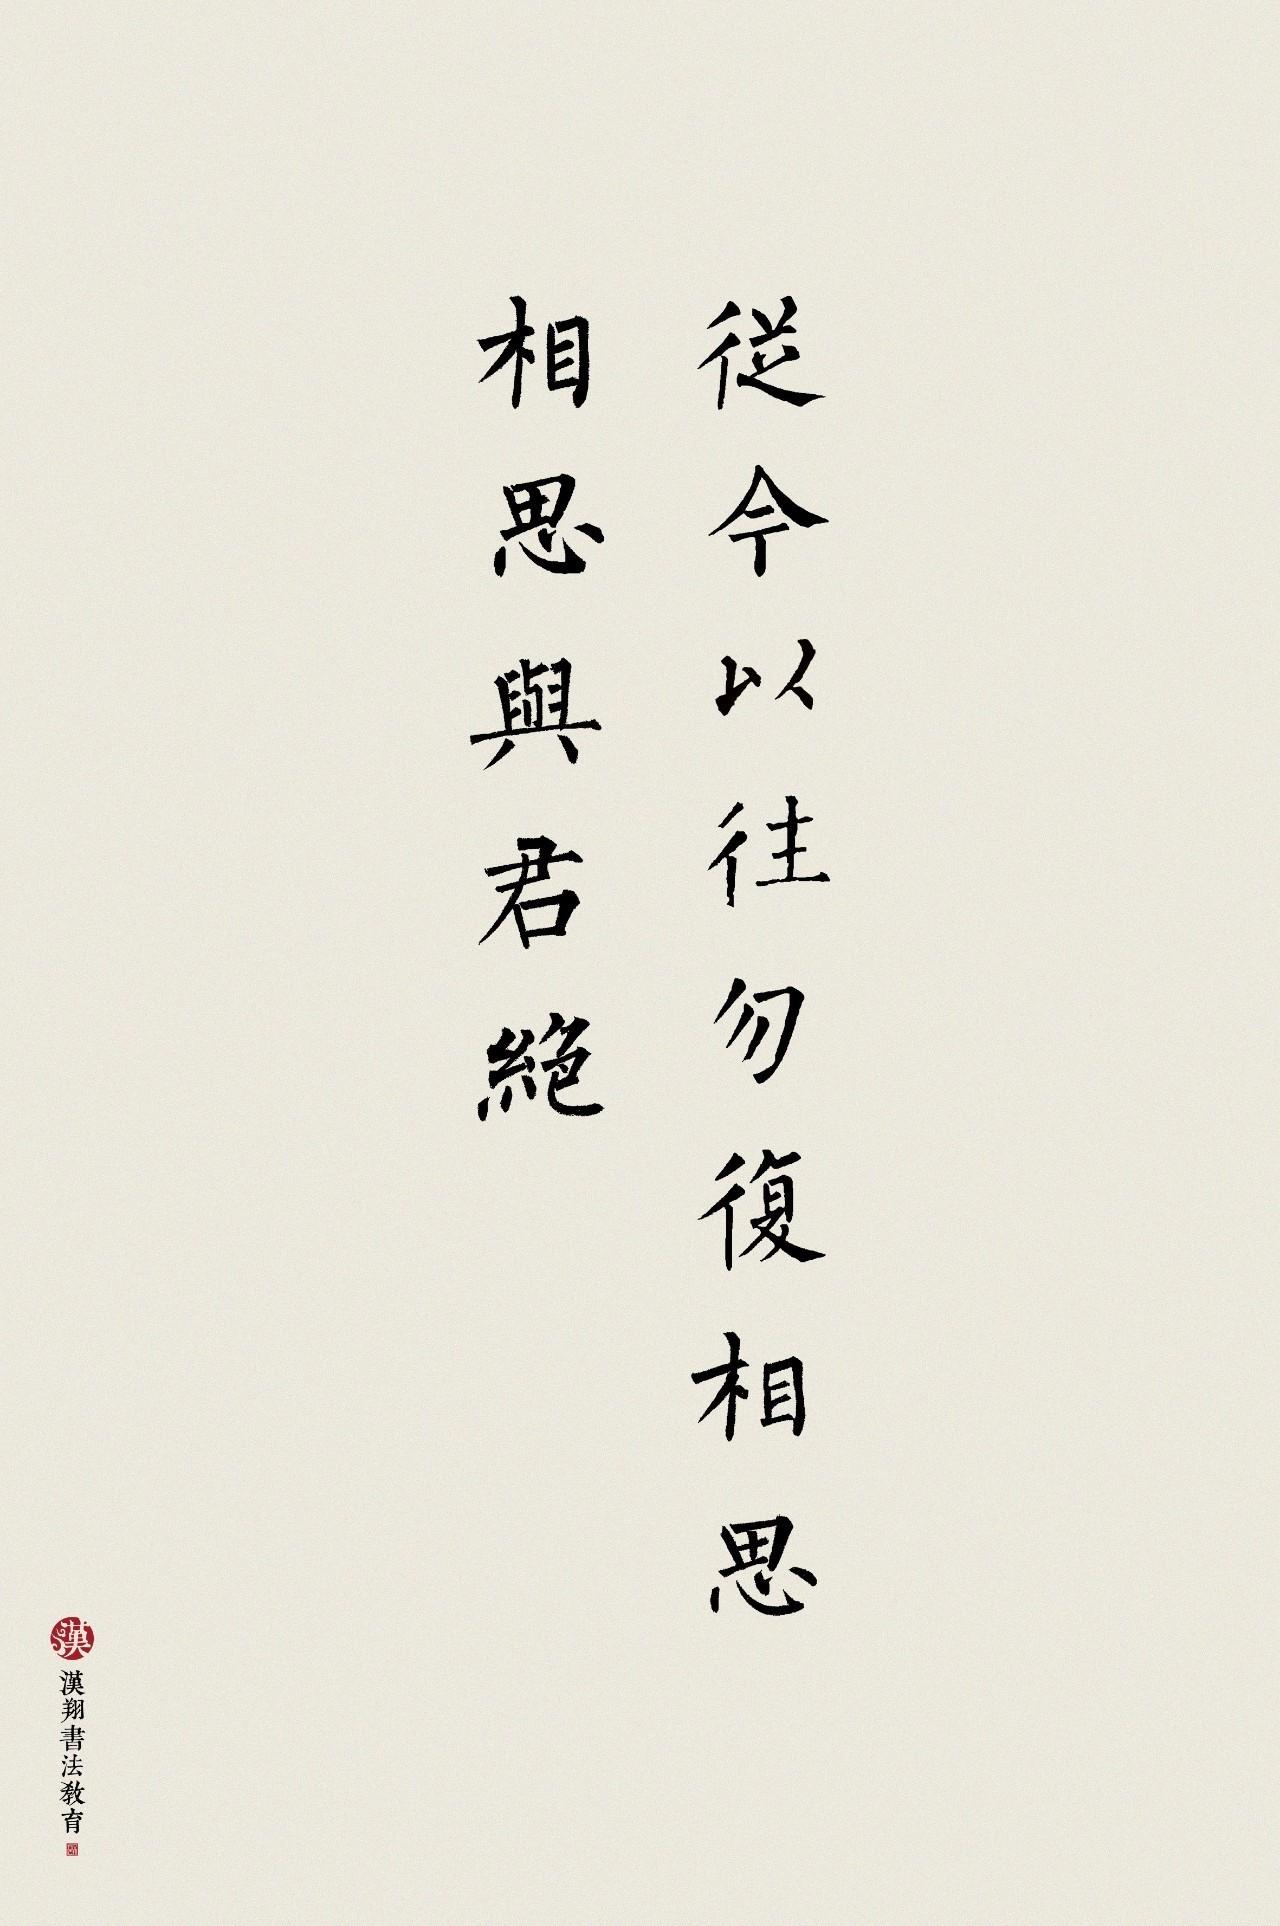 從今以往勿復相思
相思與君絕
漢
漢翔書法教育